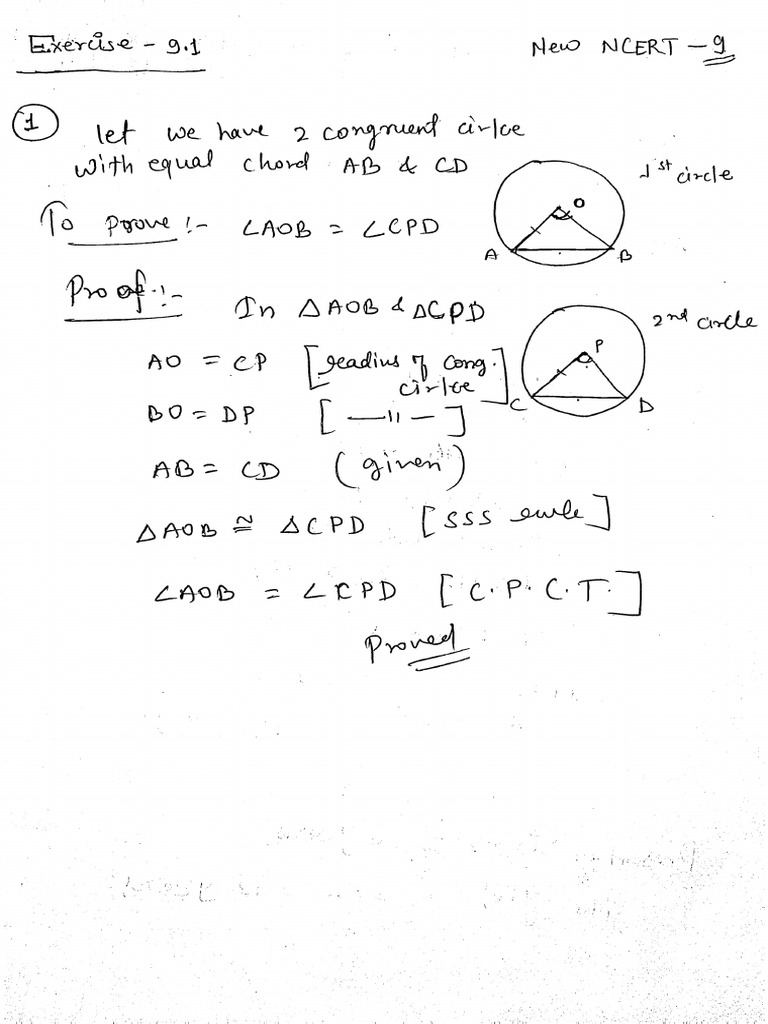 Exercise - 9.1
New NCERT - 9
1 let we have 2 congruent cirlce
with equal chord AB & CD
1st circle
O
A B
To prove :- ∠AOB = ∠CPD
Proof :-
In △AOB & △CPD
2nd circle
P
C D
AO = CP [readius of cong.
cirlce]
BO = DP [ —〃— ]
AB = CD (given)
△AOB ≅ △CPD [SSS rule]
∠AOB = ∠CPD [C.P.C.T.]
Proved